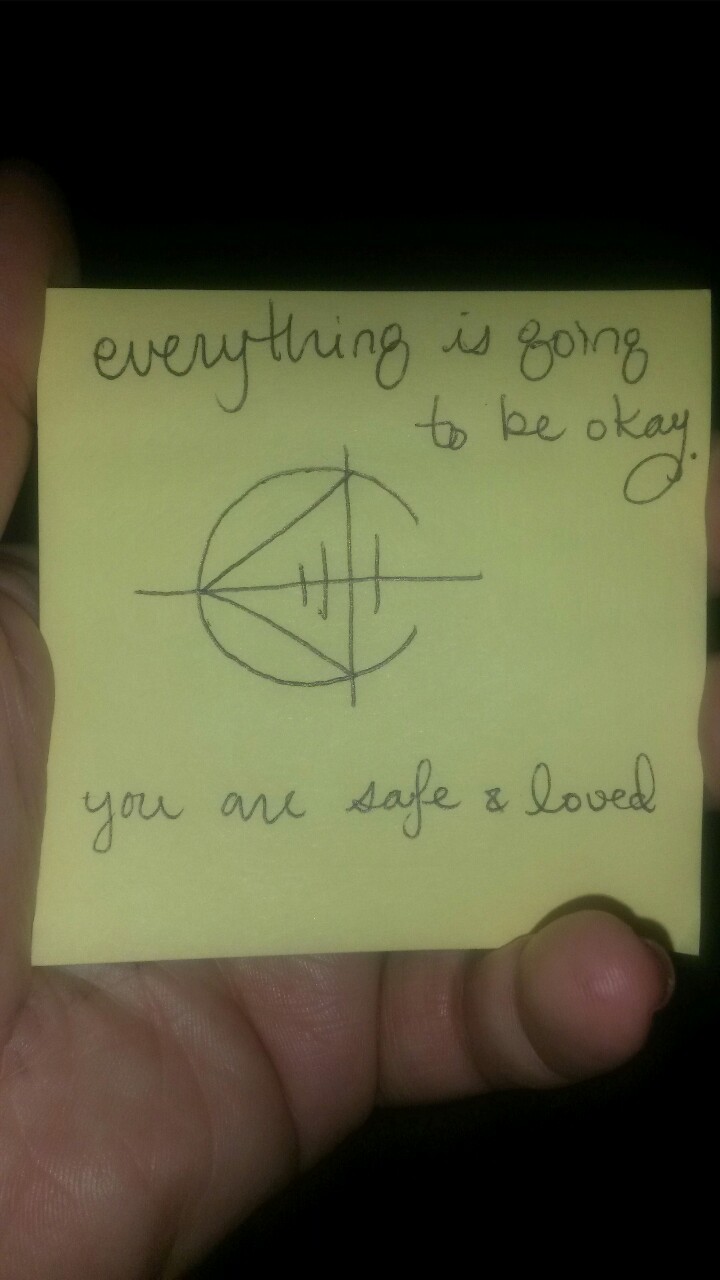 everything is going
to be okay.
you are safe & loved